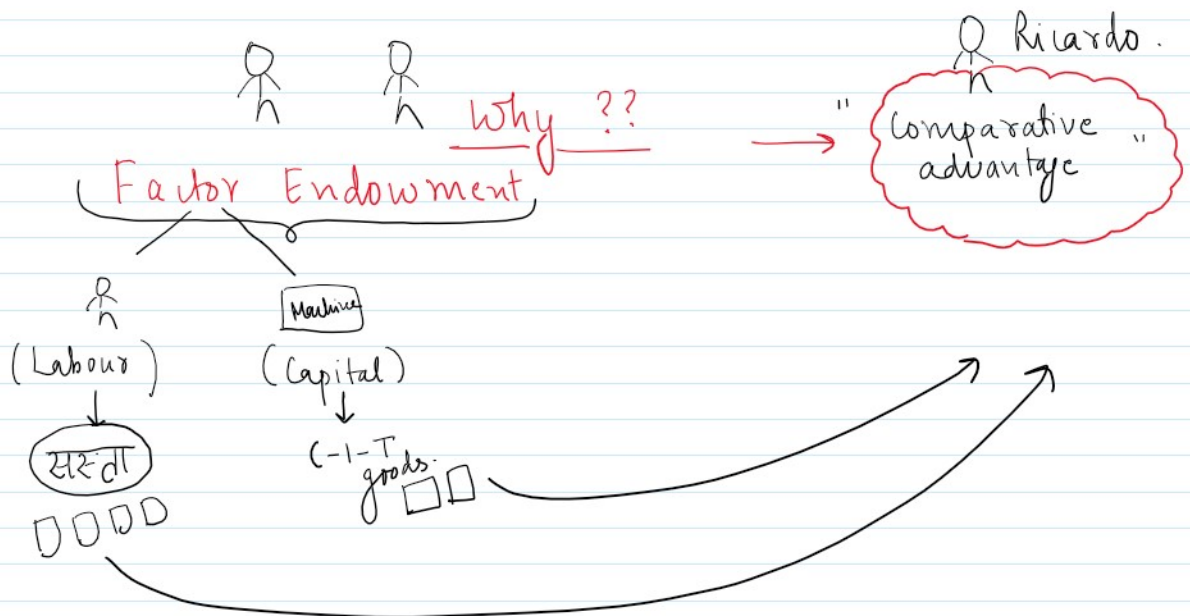 Ricardo.
Why ??
" Comparative "
advantage
Factor Endowment
Machine
(Labour)
(Capital)
सस्ता
C-I-T
goods.